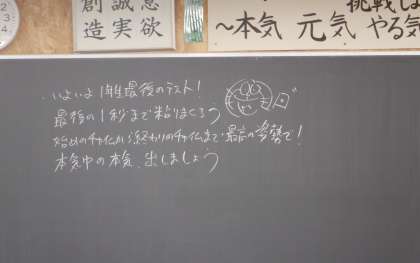 創 誠 意
造 実 欲
挑戦しま
～本気 元気 やる気
いよいよ1年生最後のテスト！
最後の1秒まで粘りまくろう
始めのチャイムから終わりのチャイムまで最高の姿勢で！
本気中の本気、出しましょう